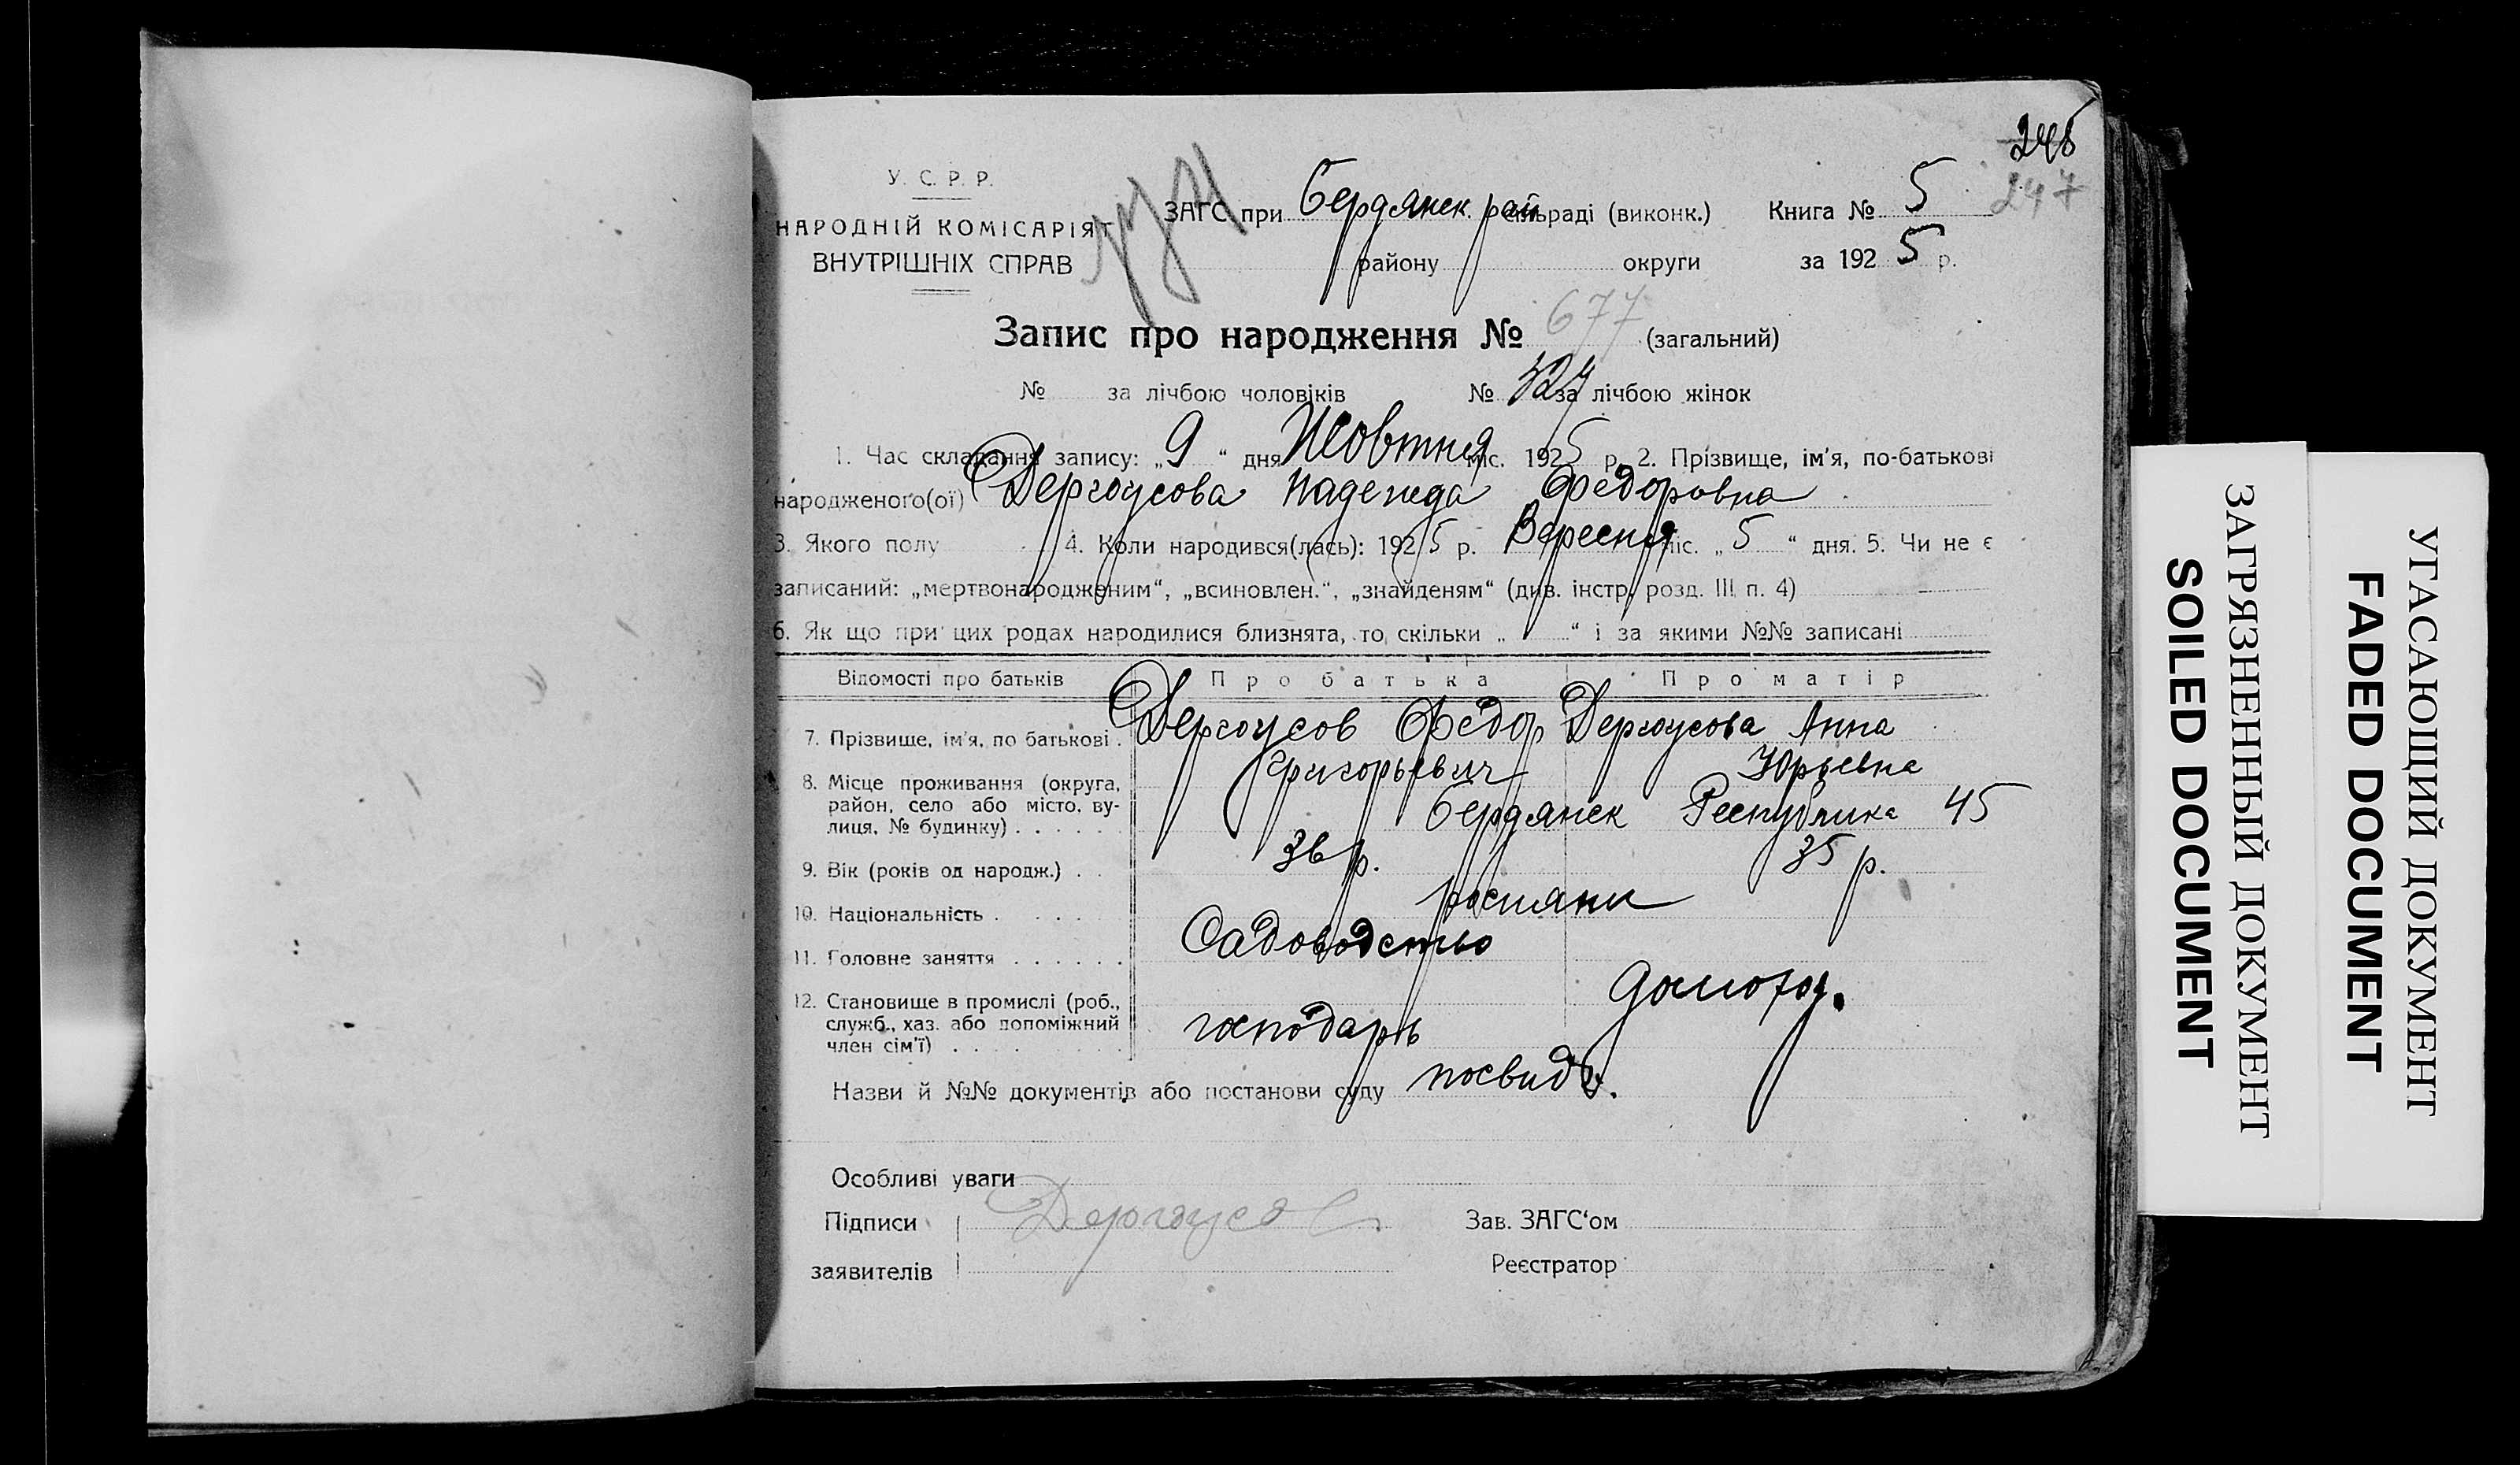 248
247
У. С. Р. Р.
НАРОДНІЙ КОМІСАРІЯТ
ВНУТРІШНІХ СПРАВ
ЗАГС при Бердянск. рай сільраді (виконк.) Книга № 5
району округи за 192 5 р.
Запис про народження № 677 (загальний)
№ за лічбою чоловіків № 324 за лічбою жінок
1. Час складання запису: „ 9 “ дня Жовтня міс. 192 5 р. 2. Прізвище, ім'я, по-батькові
народженого(ої) Дергоусова Надежда Федоровна
3. Якого полу 4. Коли народився(лась): 192 5 р. Вересня міс. „ 5 “ дня. 5. Чи не є
записаний: „мертвонародженим“, „всиновлен.“, „знайденям“ (див. інстр. розд. III п. 4)
6. Як що при цих родах народилися близнята, то скільки „ “ і за якими №№ записані
Відомості про батьків Про батька Про матір
7. Прізвище, ім'я, по батькові . Дергоусов Федор Дергоусова Анна
Григорьевич Юрьевна
8. Місце проживання (округа,
район, село або місто, ву-
лиця, № будинку) . . . . . . Бердянск Республика 45
9. Вік (років од народж.) . . 36 р. 35 р.
10. Національність . . . . . росияни
11. Головне заняття . . . . . . Садоводство
12. Становище в промислі (роб.,
служб., хаз. або допоміжний
член сім'ї) . . . . господарь домогос.
Назви й №№ документів або постанови суду посвид.
Особливі уваги
Підписи Дергоусов Зав. ЗАГС‘ом
заявителів Реєстратор
ЗАГРЯЗНЕННЫЙ ДОКУМЕНТ
SOILED DOCUMENT
УГАСАЮЩИЙ ДОКУМЕНТ
FADED DOCUMENT